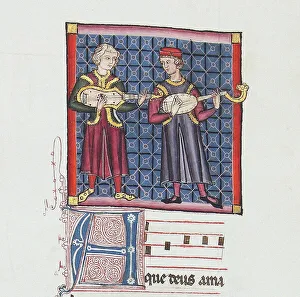 A
que deus ama